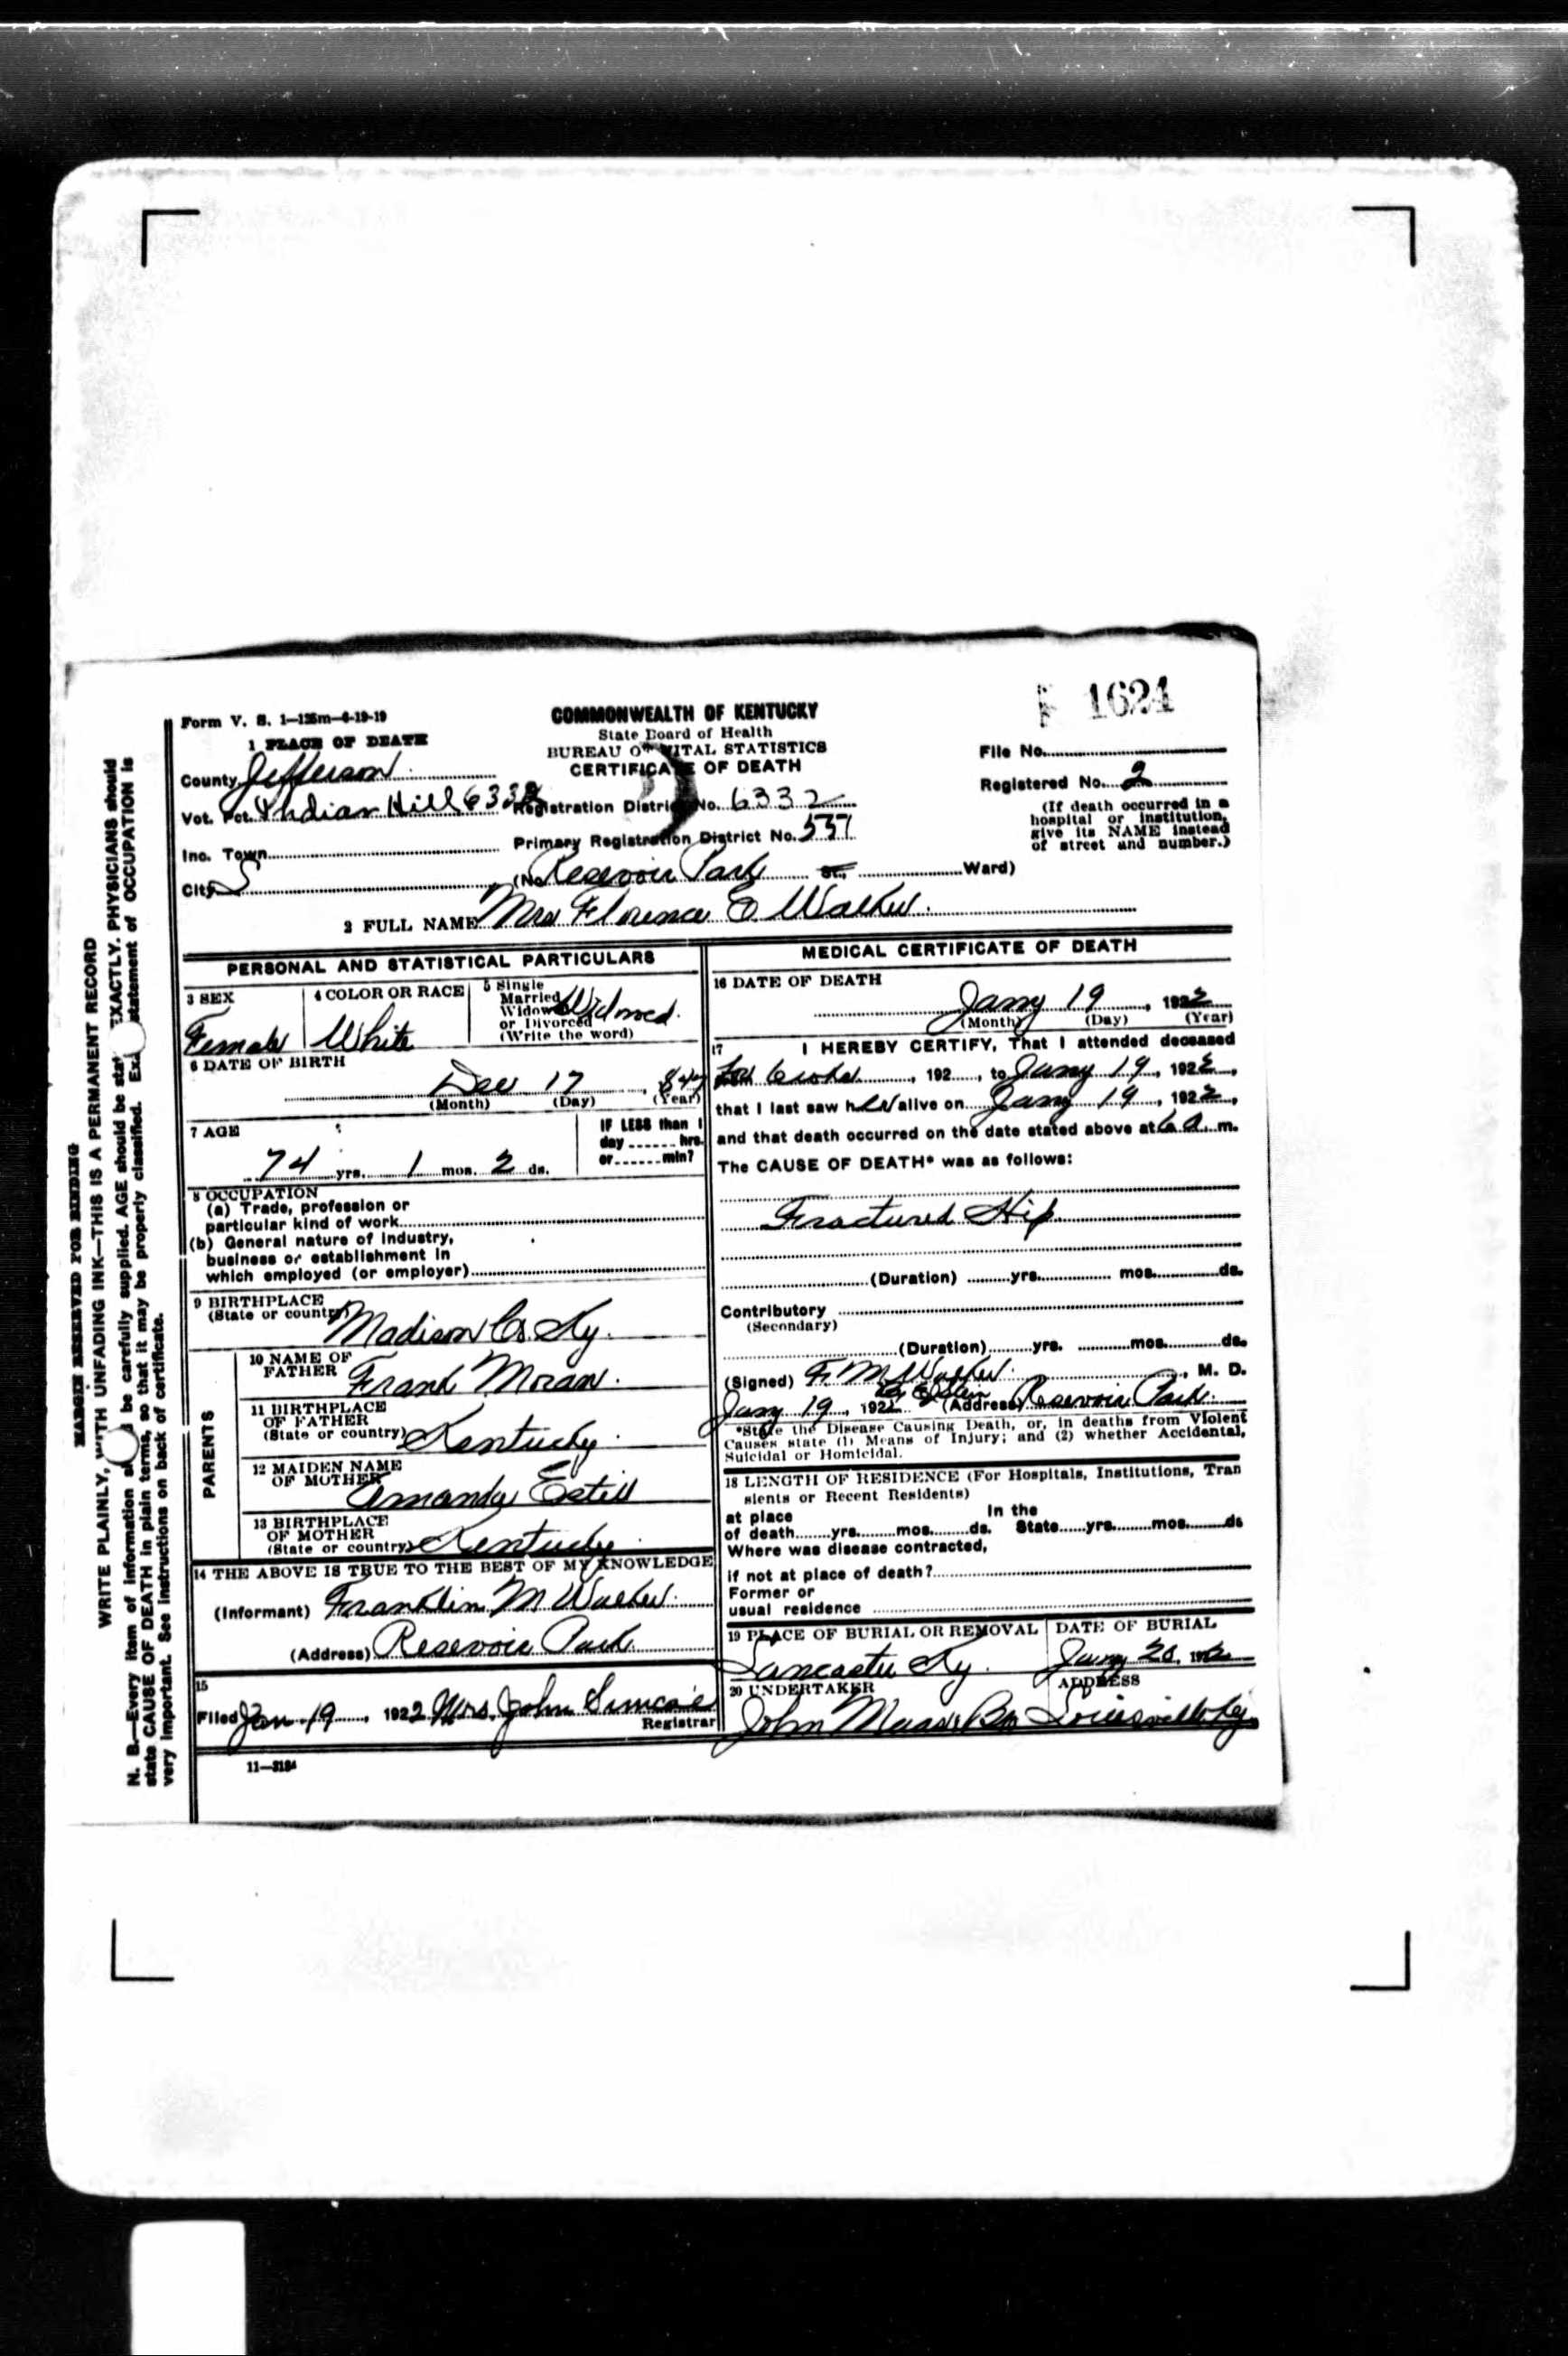 1624
Form V. S. 1—125m—4-19-19
COMMONWEALTH OF KENTUCKY
State Board of Health
BUREAU OF VITAL STATISTICS
CERTIFICATE OF DEATH
File No.
Registered No. 2
(If death occurred in a
hospital or institution,
give its NAME instead
of street and number.)
1 PLACE OF DEATH
County Jefferson
Vot. Pct. Indian Hill 6332 Registration District No. 6332
Inc. Town Primary Registration District No. 537
City (No. Reservoir Park St., Ward)
2 FULL NAME Mrs Florence E Walker
PERSONAL AND STATISTICAL PARTICULARS
3 SEX
Female
4 COLOR OR RACE
White
5 Single
Married
Widowed
or Divorced
(Write the word)
Widowed
6 DATE OF BIRTH
Dec 17, 847
(Month) (Day) (Year)
7 AGE
74 yrs. 1 mos. 2 ds.
IF LESS than 1
day hrs.
or min?
8 OCCUPATION
(a) Trade, profession or
particular kind of work
(b) General nature of industry,
business or establishment in
which employed (or employer)
9 BIRTHPLACE
(State or country) Madison Co. Ky.
PARENTS
10 NAME OF
FATHER Frank Moran
11 BIRTHPLACE
OF FATHER
(State or country) Kentucky
12 MAIDEN NAME
OF MOTHER Amanda Estill
13 BIRTHPLACE
OF MOTHER
(State or country) Kentucky
14 THE ABOVE IS TRUE TO THE BEST OF MY KNOWLEDGE
(Informant) Franklin M Walker
(Address) Reservoir Park
15
Filed Jan 19, 1922 Mrs. John Simcoe
Registrar
11—3184
MEDICAL CERTIFICATE OF DEATH
16 DATE OF DEATH
Jany 19, 1922
(Month) (Day) (Year)
17 I HEREBY CERTIFY, That I attended deceased
, 192 , to Jany 19, 1922,
that I last saw her alive on Jany 19, 1922,
and that death occurred on the date stated above at 6 A. m.
The CAUSE OF DEATH* was as follows:
Fractured Hip
(Duration) yrs. mos. ds.
Contributory
(Secondary)
(Duration) yrs. mos. ds.
(Signed) F. M. Walker, M. D.
Jany 19, 1922 (Address) Reservoir Park
*State the Disease Causing Death, or, in deaths from Violent
Causes state (1) Means of Injury; and (2) whether Accidental,
Suicidal or Homicidal.
18 LENGTH OF RESIDENCE (For Hospitals, Institutions, Tran
sients or Recent Residents)
at place In the
of death yrs. mos. ds. State yrs. mos. ds
Where was disease contracted,
if not at place of death?
Former or
usual residence
19 PLACE OF BURIAL OR REMOVAL
Lancaster Ky.
DATE OF BURIAL
Jany 20, 192
20 UNDERTAKER
John Maas & Bro
ADDRESS
Louisville Ky
MARGIN RESERVED FOR BINDING
WRITE PLAINLY, WITH UNFADING INK—THIS IS A PERMANENT RECORD
N. B.—Every item of information should be carefully supplied. AGE should be stated EXACTLY. PHYSICIANS should
state CAUSE OF DEATH in plain terms, so that it may be properly classified. Exact statement of OCCUPATION is
very important. See instructions on back of certificate.